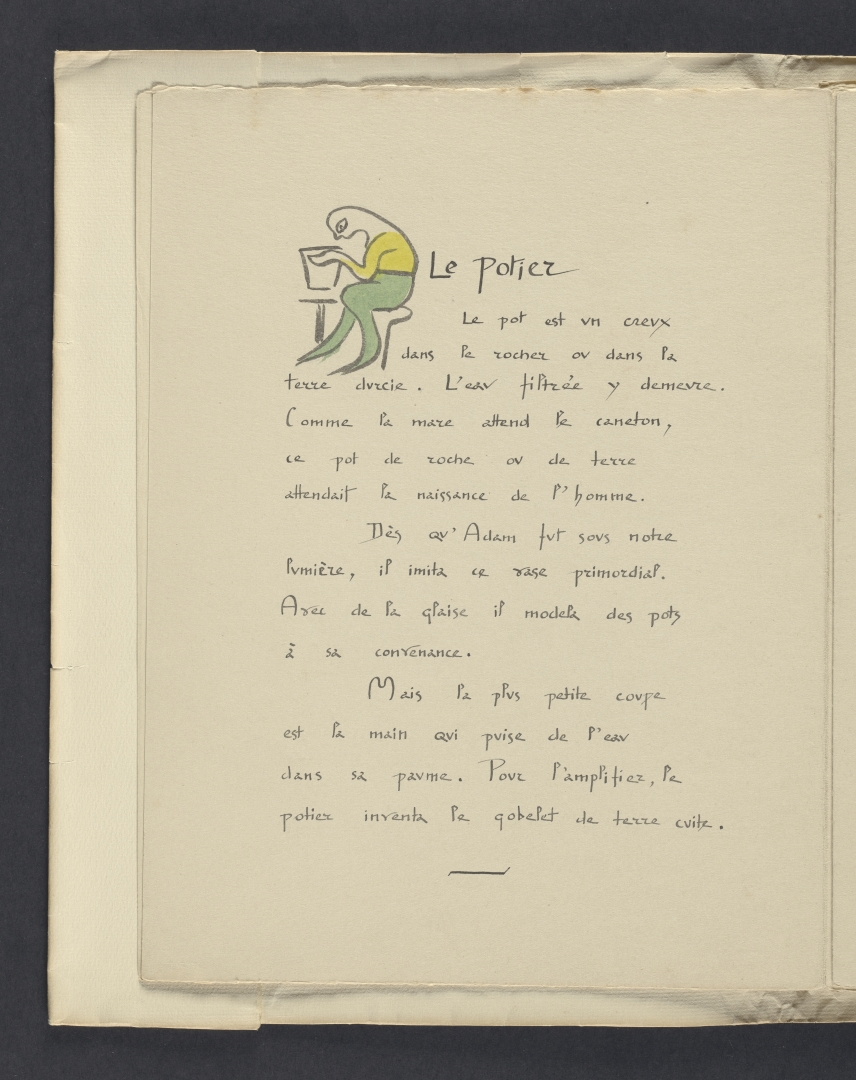 Le potier
Le pot est un creux
dans le rocher ou dans la
terre durcie. L'eau filtrée y demeure.
Comme la mare attend le caneton,
ce pot de roche ou de terre
attendait la naissance de l'homme.
Dès qu'Adam fut sous notre
lumière, il imita ce vase primordial.
Avec de la glaise il modela des pots
à sa convenance.
Mais la plus petite coupe
est la main qui puise de l'eau
dans sa paume. Pour l'amplifier, le
potier inventa le gobelet de terre cuite.